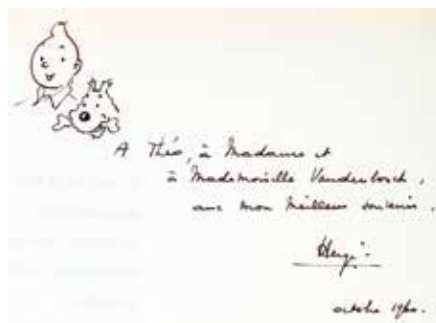 A Théo, à Madame et
à Mademoiselle Vandenbosch,
avec mon meilleur souvenir.
Hergé.
octobre 1960.